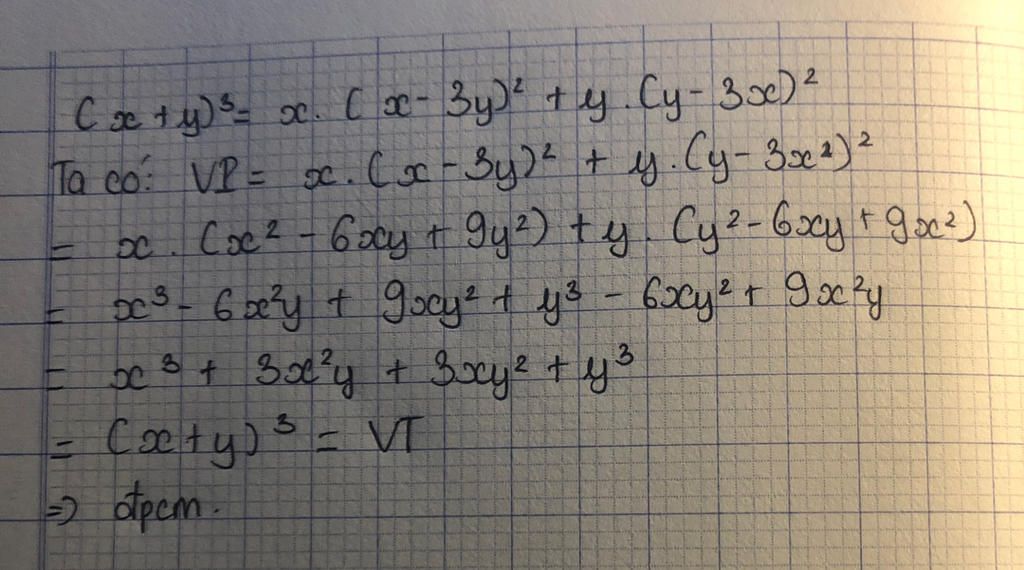 (x+y)³= x.(x-3y)² + y.(y-3x)²
Ta có: VP= x.(x-3y)² + y.(y-3x²)²
= x.(x²-6xy+9y²)+y.(y²-6xy+9x²)
= x³-6x²y+9xy²+y³-6xy²+9x²y
= x³+3x²y+3xy²+y³
= (x+y)³ = VT
=> đpcm.